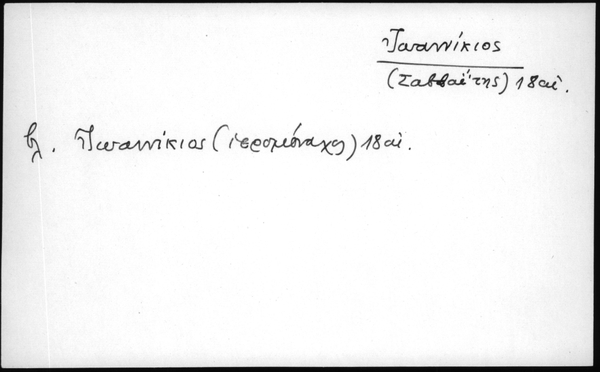 Ἰωαννίκιος
(Σαββαΐτης) 18 αἰ.
βλ. Ἰωαννίκιος (ἱερομόναχος) 18 αἰ.